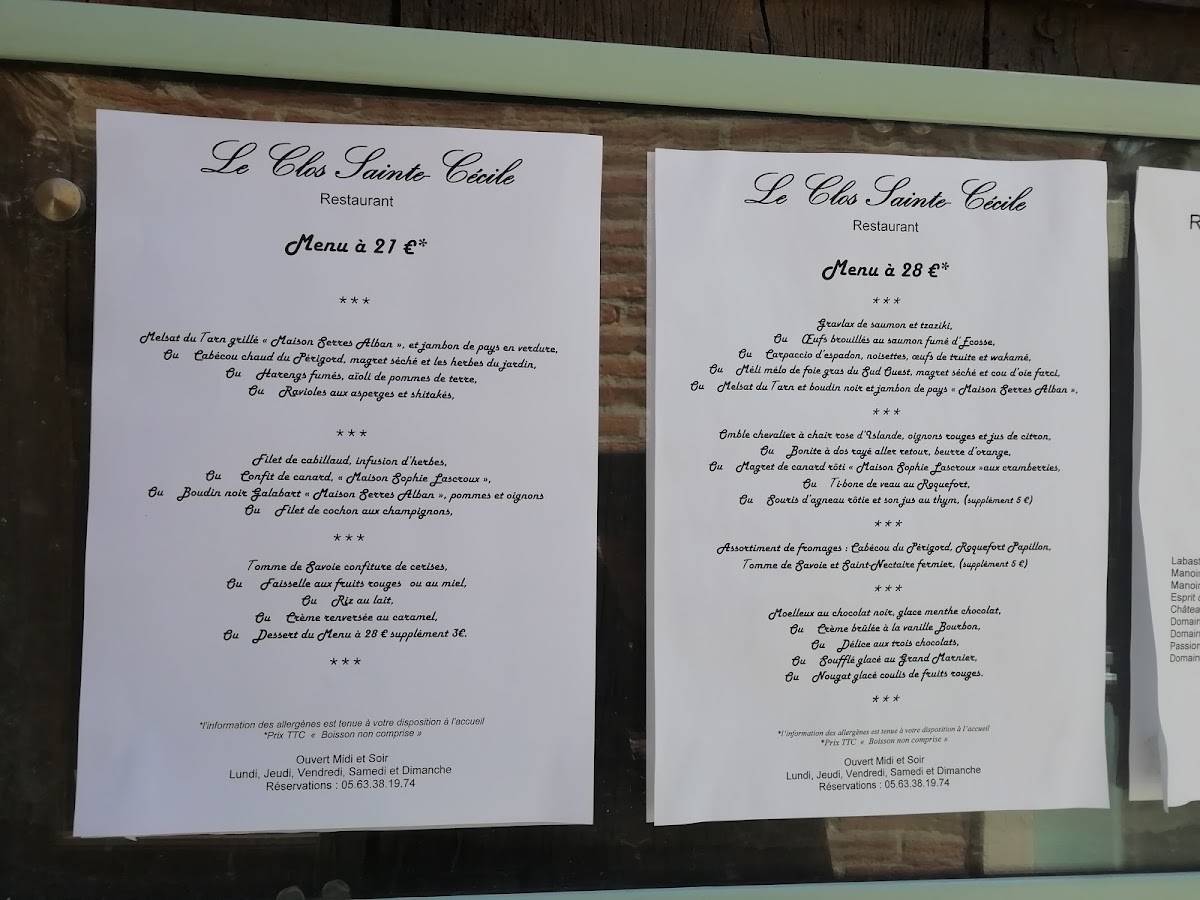 Le Clos Sainte-Cécile
Restaurant
Menu à 21 €*
***
Melsat du Tarn grillé « Maison Serres Alban », et jambon de pays en verdure,
Ou Cabécou chaud du Périgord, magret séché et les herbes du jardin,
Ou Harengs fumés, aïoli de pommes de terre,
Ou Ravioles aux asperges et shitakés,
***
Filet de cabillaud, infusion d'herbes,
Ou Confit de canard, « Maison Sophie Lascroux »,
Ou Boudin noir Galabart « Maison Serres Alban », pommes et oignons
Ou Filet de cochon aux champignons,
***
Tomme de Savoie confiture de cerises,
Ou Faisselle aux fruits rouges ou au miel,
Ou Riz au lait,
Ou Crème renversée au caramel,
Ou Dessert du Menu à 28 € supplément 3€.
***
*l'information des allergènes est tenue à votre disposition à l'accueil
*Prix TTC « Boisson non comprise »
Ouvert Midi et Soir
Lundi, Jeudi, Vendredi, Samedi et Dimanche
Réservations : 05.63.38.19.74
Le Clos Sainte-Cécile
Restaurant
Menu à 28 €*
***
Gravlax de saumon et tzaziki,
Ou Œufs brouillés au saumon fumé d'Ecosse,
Ou Carpaccio d'espadon, noisettes, œufs de truite et wakamé,
Ou Méli mélo de foie gras du Sud Ouest, magret séché et cou d'oie farci,
Ou Melsat du Tarn et boudin noir et jambon de pays « Maison Serres Alban ».
***
Omble chevalier à chair rose d'Islande, oignons rouges et jus de citron,
Ou Bonite à dos rayé aller retour, beurre d'orange,
Ou Magret de canard rôti « Maison Sophie Lascroux »aux cramberries,
Ou Ti-bone de veau au Roquefort,
Ou Souris d'agneau rôtie et son jus au thym, (supplément 5 €)
***
Assortiment de fromages : Cabécou du Périgord, Roquefort Papillon,
Tomme de Savoie et Saint-Nectaire fermier, (supplément 5 €)
***
Moelleux au chocolat noir, glace menthe chocolat,
Ou Crème brûlée à la vanille Bourbon,
Ou Délice aux trois chocolats,
Ou Soufflé glacé au Grand Marnier,
Ou Nougat glacé coulis de fruits rouges.
***
*l'information des allergènes est tenue à votre disposition à l'accueil
*Prix TTC « Boisson non comprise »
Ouvert Midi et Soir
Lundi, Jeudi, Vendredi, Samedi et Dimanche
Réservations : 05.63.38.19.74
R
Labast
Manoir
Manoir
Esprit
Châtea
Domain
Domain
Passion
Domain